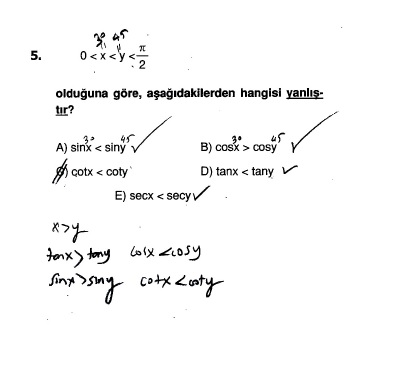 30 45
5. 0 < x < y < π/2
olduğuna göre, aşağıdakilerden hangisi yanlış-
tır?
30 45 30 45
A) sinx < siny B) cosx > cosy
C) cotx < coty D) tanx < tany
E) secx < secy
x>y
tanx > tany cosx < cosy
sinx > siny cotx < coty